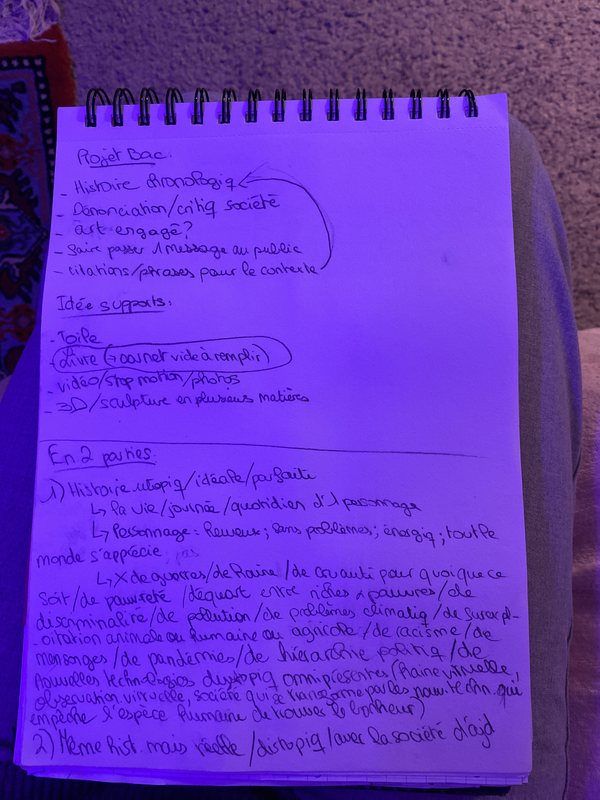 Projet Bac:
- Histoire chronologiq
- Dénonciation/critiq société
- art engagé?
- faire passer 1 message au public
- citations/phrases pour le contexte
Idée supports:
- Toile
- Livre (→ carnet vide à remplir)
- vidéo/stop motion/photos
- 3D/sculpture en plusieurs matières
En 2 parties:
1) Histoire utopiq/idéale/parfaite
↳ la vie/journée/quotidien d'1 personnage
↳ Personnage: heureux; sans problèmes; énergiq; tout le
monde s'apprécie pas
↳ X de guerres/de haine/de cruauté pour quoi que ce
soit/de pauvreté/d'écart entre riches & pauvres/de
discriminalité/de pollution/de problèmes climatiq/de surexpl-
oitation animale ou humaine ou agricole/de racisme/de
mensonges/de pandémies/de hiérarchie politiq/de
nouvelles technologies dystopiq omniprésentes (haine virtuelle,
observation virtuelle, société qui se transforme par les nouv. techn. qui
empêche l'espèce humaine de trouver le bonheur)
2) Même hist. mais réelle/distopiq/avec la société d'ajd